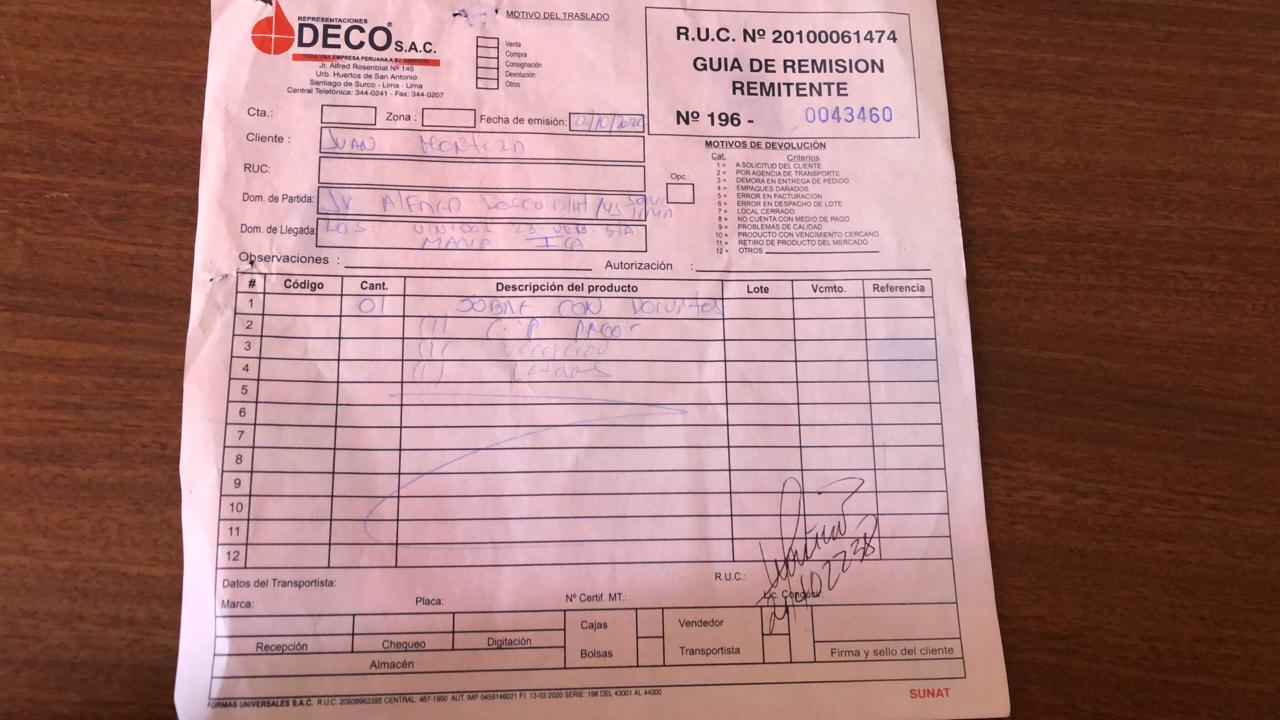 REPRESENTACIONES
DECO S.A.C.
UNA EMPRESA PERUANA A SU SERVICIO
Jr. Alfred Rosenblat Nº 145
Urb. Huertos de San Antonio
Santiago de Surco - Lima - Lima
Central Telefónica: 344-0241 - Fax: 344-0207
MOTIVO DEL TRASLADO
Venta
Compra
Consignación
Devolución
Otros
R.U.C. Nº 20100061474
GUIA DE REMISION
REMITENTE
Nº 196 - 0043460
Cta.: Zona : Fecha de emisión: 22/10/2020
Cliente : JUAN MONTERO
RUC:
Opc.:
Dom. de Partida: Jr Alfred 145 Surco Lima
Dom. de Llegada: LOS URB. STA
MARIA ICA
MOTIVOS DE DEVOLUCIÓN
Cat. Criterios
1 = A SOLICITUD DEL CLIENTE
2 = POR AGENCIA DE TRANSPORTE
3 = DEMORA EN ENTREGA DE PEDIDO
4 = EMPAQUES DAÑADOS
5 = ERROR EN FACTURACION
6 = ERROR EN DESPACHO DE LOTE
7 = LOCAL CERRADO
8 = NO CUENTA CON MEDIO DE PAGO
9 = PROBLEMAS DE CALIDAD
10 = PRODUCTO CON VENCIMIENTO CERCANO
11 = RETIRO DE PRODUCTO DEL MERCADO
12 = OTROS
Observaciones : Autorización :
# Código Cant. Descripción del producto Lote Vcmto. Referencia
1 01 SOBRE CON
2 (1) PAGO
3 (1)
4 (1)
5
6
7
8
9
10
11
12
Datos del Transportista: R.U.C.:
Marca: Placa: Nº Certif. MT.: Lic. Conducir
21402238
Recepción Chequeo Digitación
Almacén
Cajas
Bolsas
Vendedor
Transportista
Firma y sello del cliente
FORMAS UNIVERSALES S.A.C. R.U.C. 20509962392 CENTRAL. 467-1900 AUT. IMP. 0459146021 F.I. 13-03-2020 SERIE: 196 DEL 43001 AL 44000
SUNAT